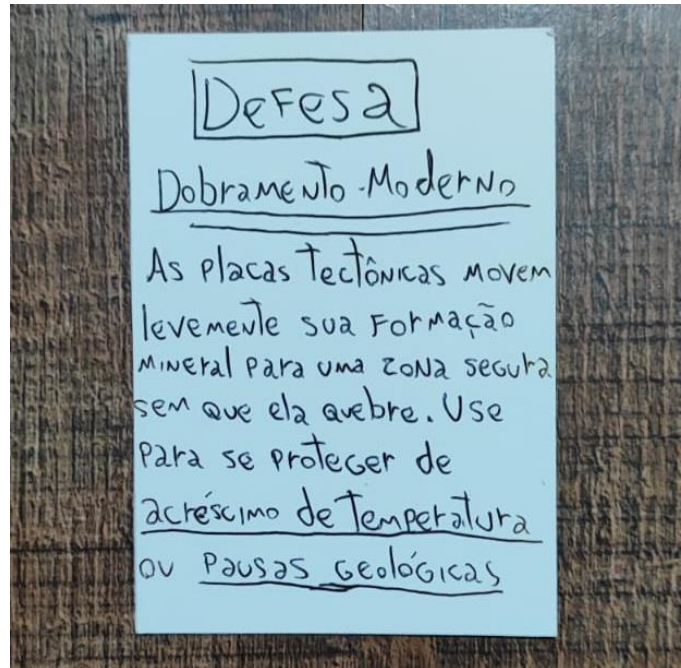 Defesa
Dobramento Moderno
As placas Tectônicas movem
levemente sua Formação
Mineral para uma zona segura
sem que ela quebre. Use
para se proteger de
acréscimo de Temperatura
ou Pausas Geológicas